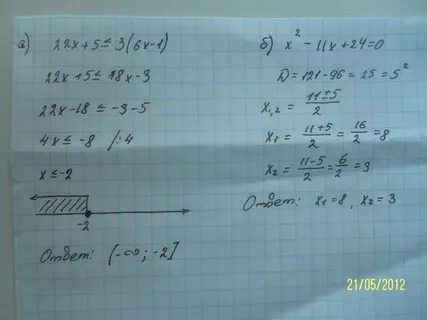 а) 22x + 5 ≤ 3(6x-1)
22x + 5 ≤ 18x - 3
22x - 18 ≤ -3 - 5
4x ≤ -8 /:4
x ≤ -2
-2
Ответ: (-∞; -2]
б) x² - 11x + 24 = 0
D = 121 - 96 = 25 = 5²
x₁,₂ = (11 ± 5)/2
x₁ = (11+5)/2 = 16/2 = 8
x₂ = (11-5)/2 = 6/2 = 3
Ответ: x₁ = 8, x₂ = 3
21/05/2012